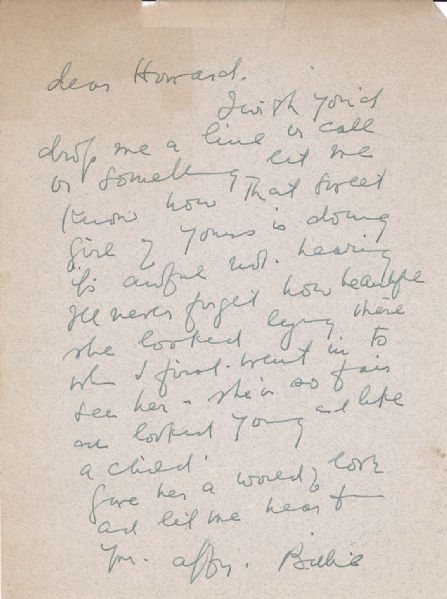 dear Howard.
I wish you'd
drop me a line or call
or something let me
know how that sweet
girl of yours is doing
it's awful not hearing
I'll never forget how beautiful
she looked lying there
when I first went in to
see her - she is so fair
and looked young and like
a child!
give her a world of love
and let me hear from
you. affy. Billie